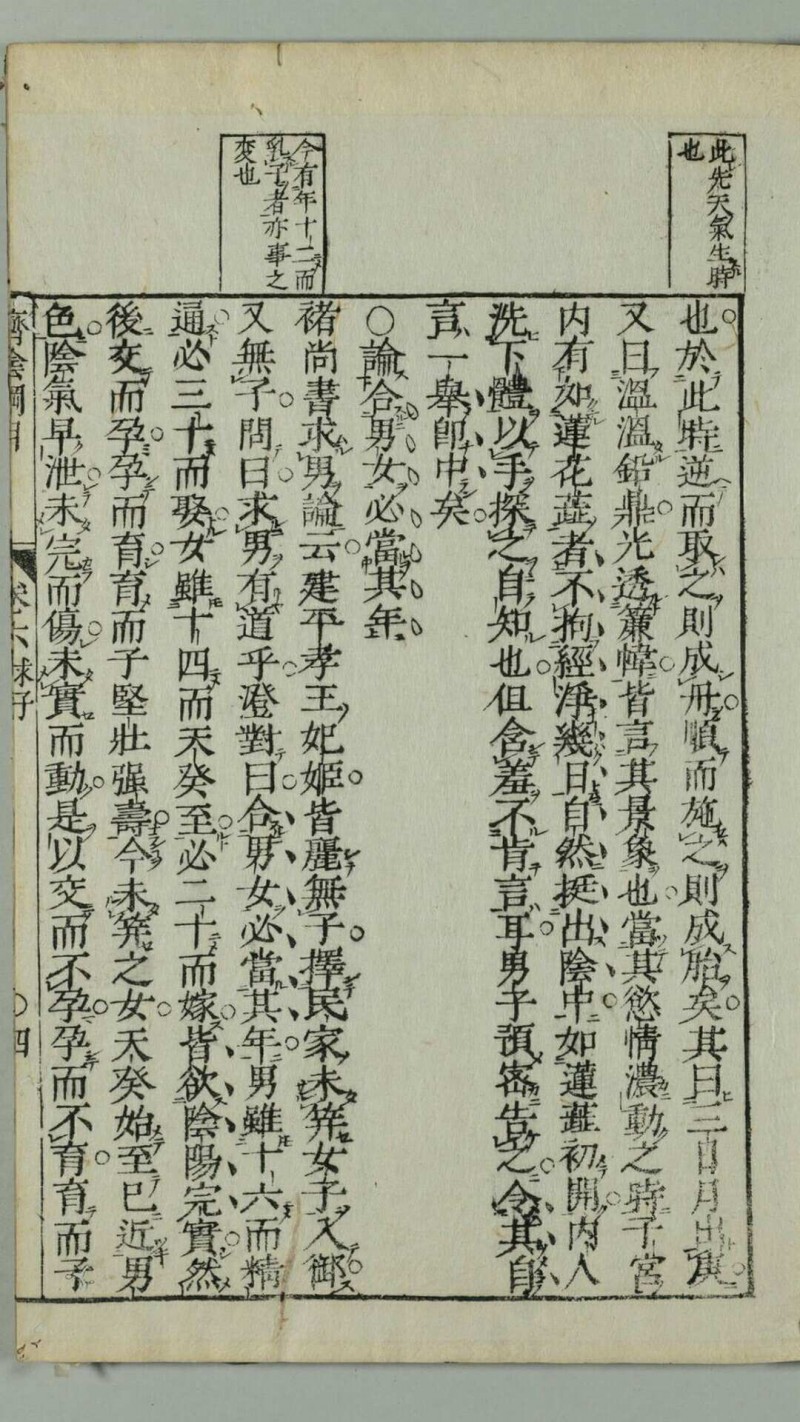 此先天氣生時
也
今有年十二而
乳子者亦事之
変也
也於此時逆而取之則成丹順而施之則成胎矣其曰三日月出庚
又曰溫溫鉛鼎光透簾幃皆言其景象也當其慾情濃動之時子宮
内有如蓮花蕋者不拘經淨幾日自然挺出陰中如蓮蕋初開内人
洗下體以手探之自知也但含羞不肯言耳男子預密告之令其自
言一舉即中矣
○論合男女必當其年
褚尚書求男論云建平孝王妃姬皆麗無子擇民家未笄女子入御
又無子問曰求男有道乎澄對曰合男女必當其年男雖十六而精
通必三十而娶女雖十四而天癸至必二十而嫁皆欲陰陽完實然
後交而孕孕而育育而子堅壯强壽今未笄之女天癸始至已近男
色陰氣早泄未完而傷未實而動是以交而不孕孕而不育育而子
濟陰綱目
卷六 求子
○四